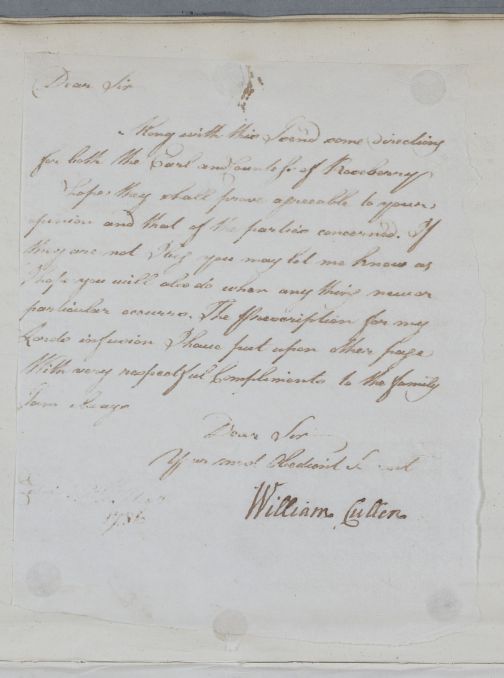 Dear Sir
Along with this I send some directions
for both the Earl and Countess of Roseberry
I hope they shall prove agreeable to your
opinion and that of the parties concerned. If
they are not I beg you may let me know as
I hope you will also do when any thing new or
particular occurrs. The Prescription for my
Lords infusion I have put upon other page
With very respectful Compliments to the family
I am always
Dear Sir
Your most Obedient Servant
William Cullen